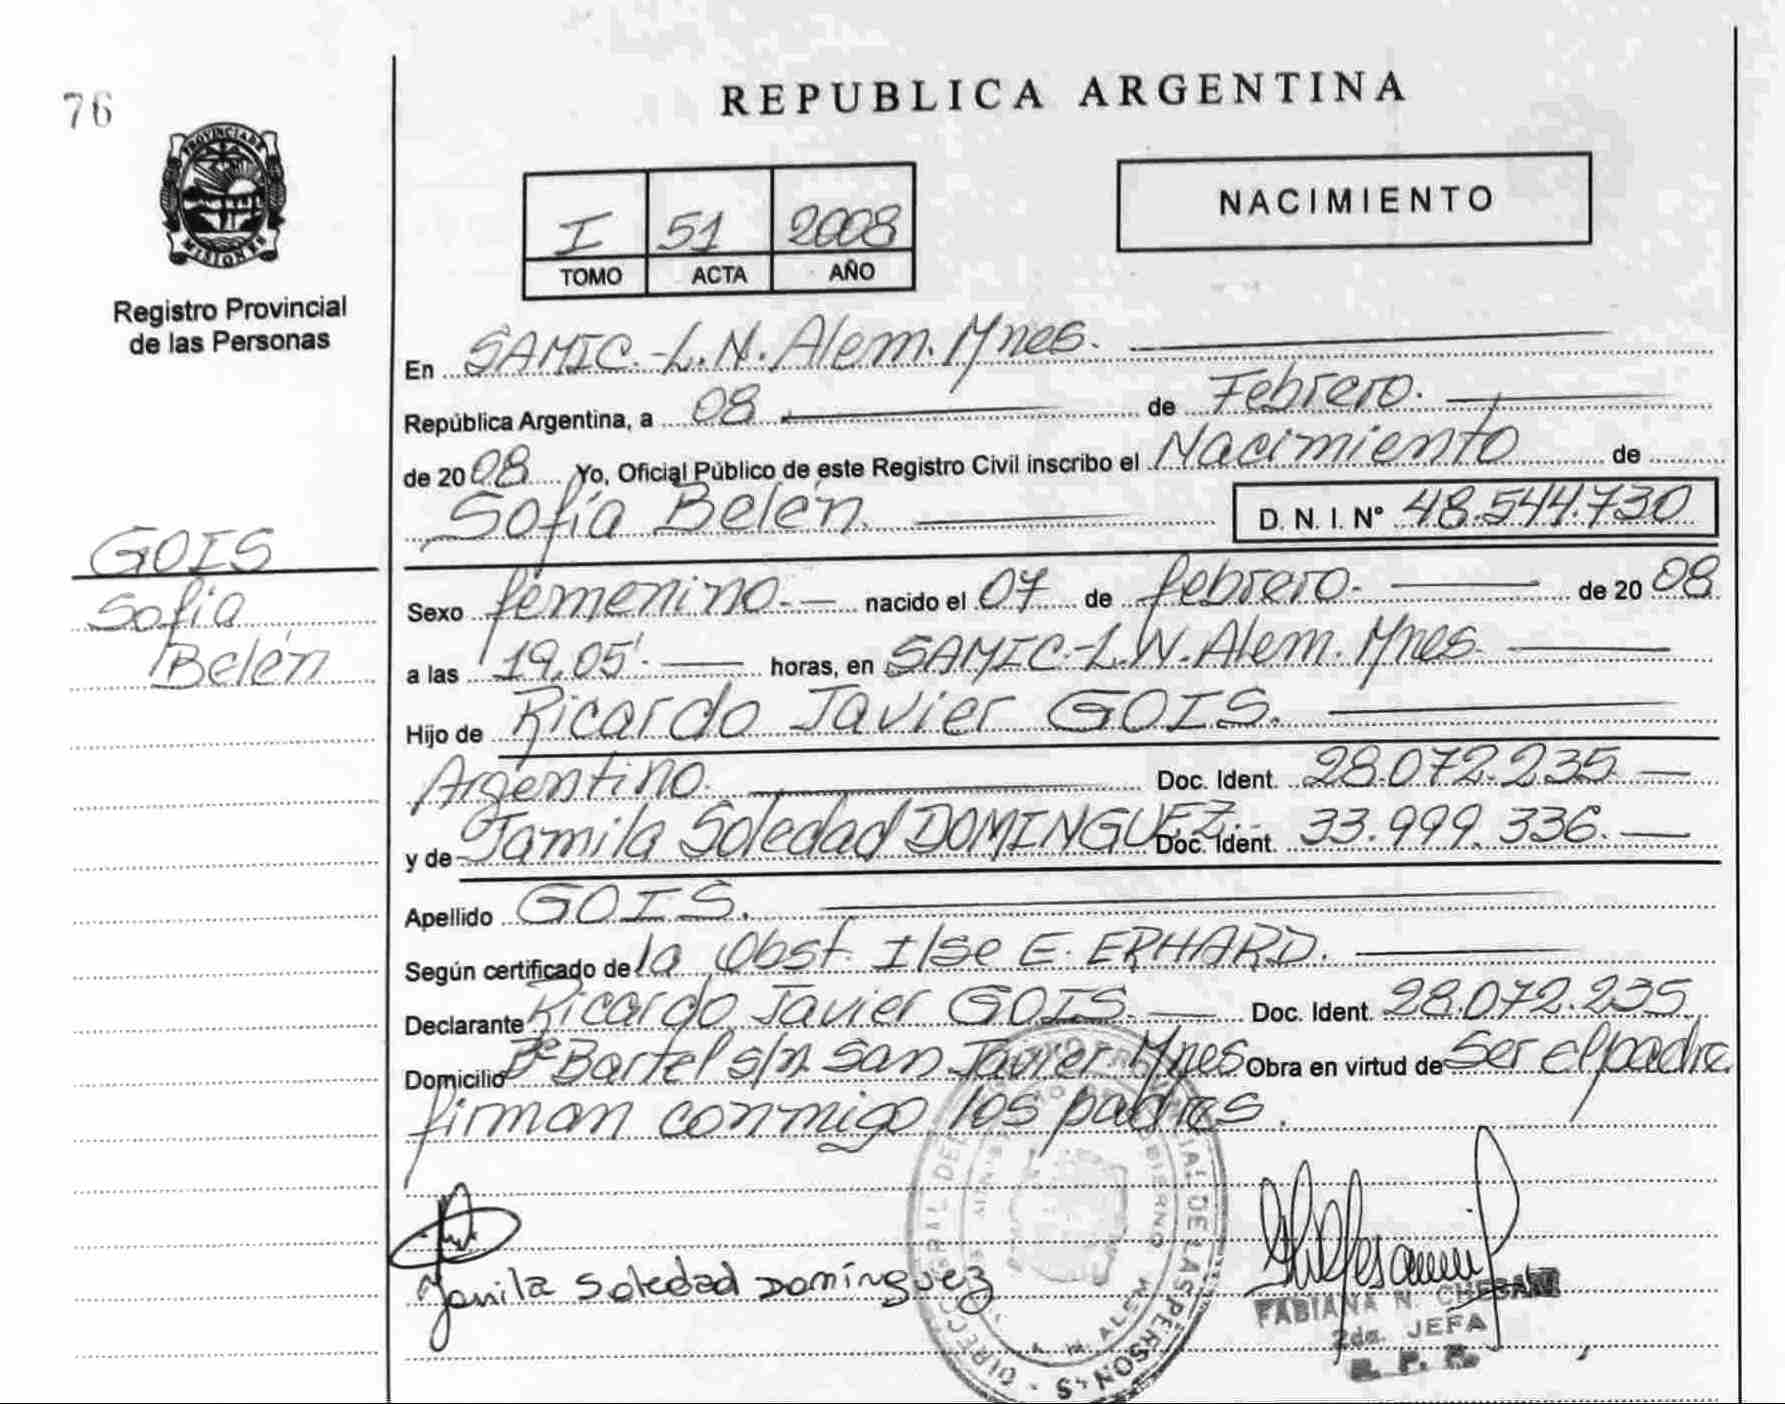 76
REPUBLICA ARGENTINA
PROVINCIA DE
MISIONES
Registro Provincial
de las Personas
I 51 2008
TOMO ACTA AÑO
NACIMIENTO
En SAMIC.-L.N.Alem.Mnes.
República Argentina, a 08 de Febrero.
de 2008 Yo, Oficial Público de este Registro Civil inscribo el Nacimiento de
Sofía Belén. D. N. I. Nº 48.544.730
GOIS
Sofía
Belén
Sexo femenino. nacido el 07 de febrero. de 2008
a las 19,05'. horas, en SAMIC-L.N.Alem.Mnes.
Hijo de Ricardo Javier GOIS.
Argentino. Doc. Ident. 28.072.235
y de Jamila Soledad DOMINGUEZ. Doc. Ident. 33.999.336.
Apellido GOIS.
Según certificado de la Obst. Ilse E. ERHARD.
Declarante Ricardo Javier GOIS. Doc. Ident. 28.072.235
Domicilio Bº Bartel s/n. San Javier Mnes Obra en virtud de Ser el padre
firman conmigo los padres.
Soledad Domínguez
FABIANA N. CHESANI
2da. JEFA
R. P. P.